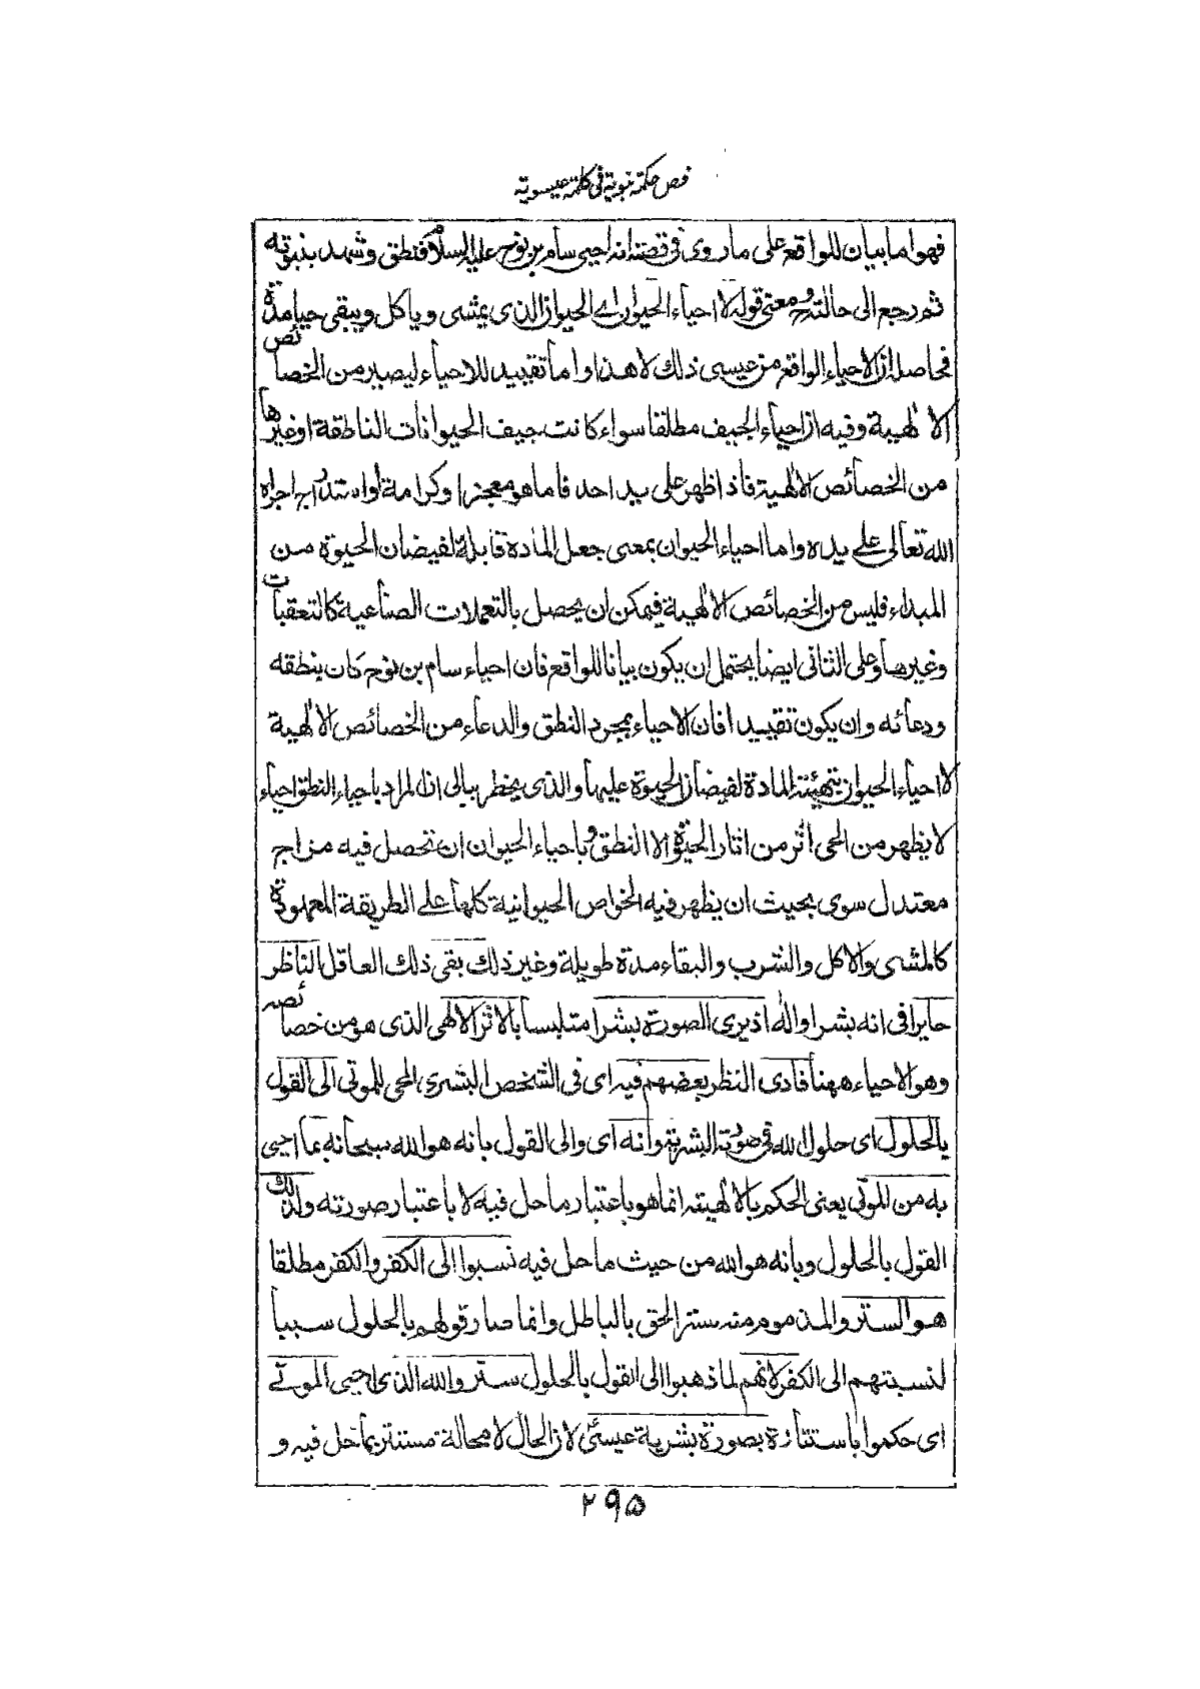 فص حكمة نبوية في كلمة عيسوية
فهو اما بيان للواقع على ما روى في قصته انه احيى سام بن نوح عليه السلام فنطق وشهد بنبوته
ثم رجع الى حالته ومعنى قوله لا احياء الحيوان اے الحيوان الذى يمشى وياكل ويبقى حيا مدة
فحاصله ان الاحياء الواقع من عيسى ذلك لا هذا واما تقييد للاحياء ليصير من الخصائص
الالهية وفيه ان احياء الجيف مطلقا سواء كانت جيف الحيوانات الناطقة او غيرها
من الخصائص الالهية فاذا ظهر على يد احد فاما هو معجزا وكرامة او استدراج اجراه
الله تعالى علے يده واما احياء الحيوان بمعنى جعل المادة قابلة لفيضان الحيوة من
المبداء فليس من الخصائص الالهية فيمكن ان يحصل بالتعملات الصناعية كالتعقبات
وغيرها وعلى الثانى ايضا يحتمل ان يكون بيانا للواقع فان احياء سام بن نوح كان بنطقه
ودعائه وان يكون تقييدا فان الاحياء بمجرد النطق والدعاء من الخصائص الالهية
لا احياء الحيوان بتهيئة المادة لفيضان الحيوة عليها والذى يخطر ببالى ان المراد باحياء النطق احياء
لا يظهر من المحى اثر من اثار الحيوة الا النطق وباحياء الحيوان ان تحصل فيه مزاج
معتدل سوى بحيث ان يظهر فيه الخواص الحيوانية كلها علے الطريقة المعهودة
كالمشى والاكل والشرب والبقاء مدة طويلة وغير ذلك بقى ذلك العاقل الناظر
حايرا فى انه بشر او اله اذ يرى الصورة بشرا متلبسا بالاثر الالهى الذى هو من خصائصه
وهو الاحياء ههنا فادى النظر بعضهم فيه اى فى الشخص البشرى المحى للموتى الى القول
بالحلول اى حلول الله فى صورته البشرية وانه اى والى القول بانه هو الله سبحانه بما احيى
به من الموتى يعنى الحكم بالالهية انما هو باعتبار ما حل فيه لا باعتبار صورته ولذلك
القول بالحلول وبانه هو الله من حيث ما حل فيه نسبوا الى الكفر والكفر مطلقا
هو الستر والمذموم منه ستر الحق بالباطل وانما صار قولهم بالحلول سببا
لنسبتهم الى الكفر لانهم لما ذهبوا الى القول بالحلول ستروا الله الذى احيى الموتے
اى حكموا باستتاره بصورة بشرية عيسى لان الحال لا محالة مستتر بما حل فيه و
۲۹۵